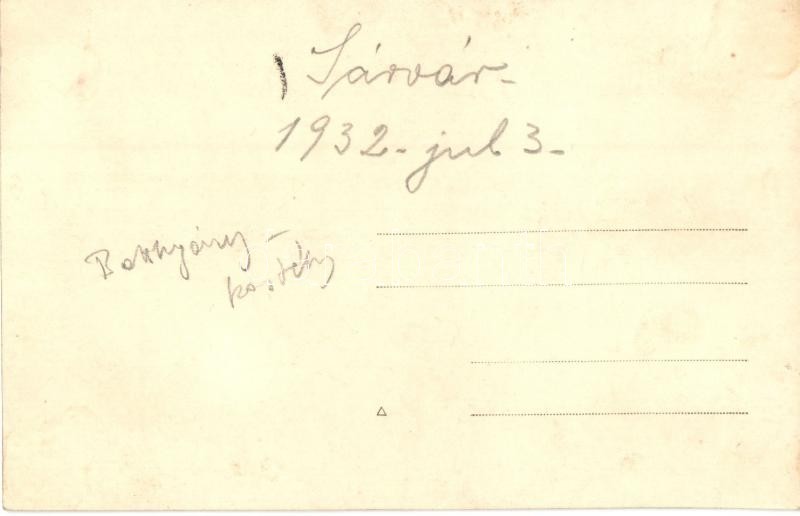 Sárvár-
1932- jul 3-
Batthyány -
kastély